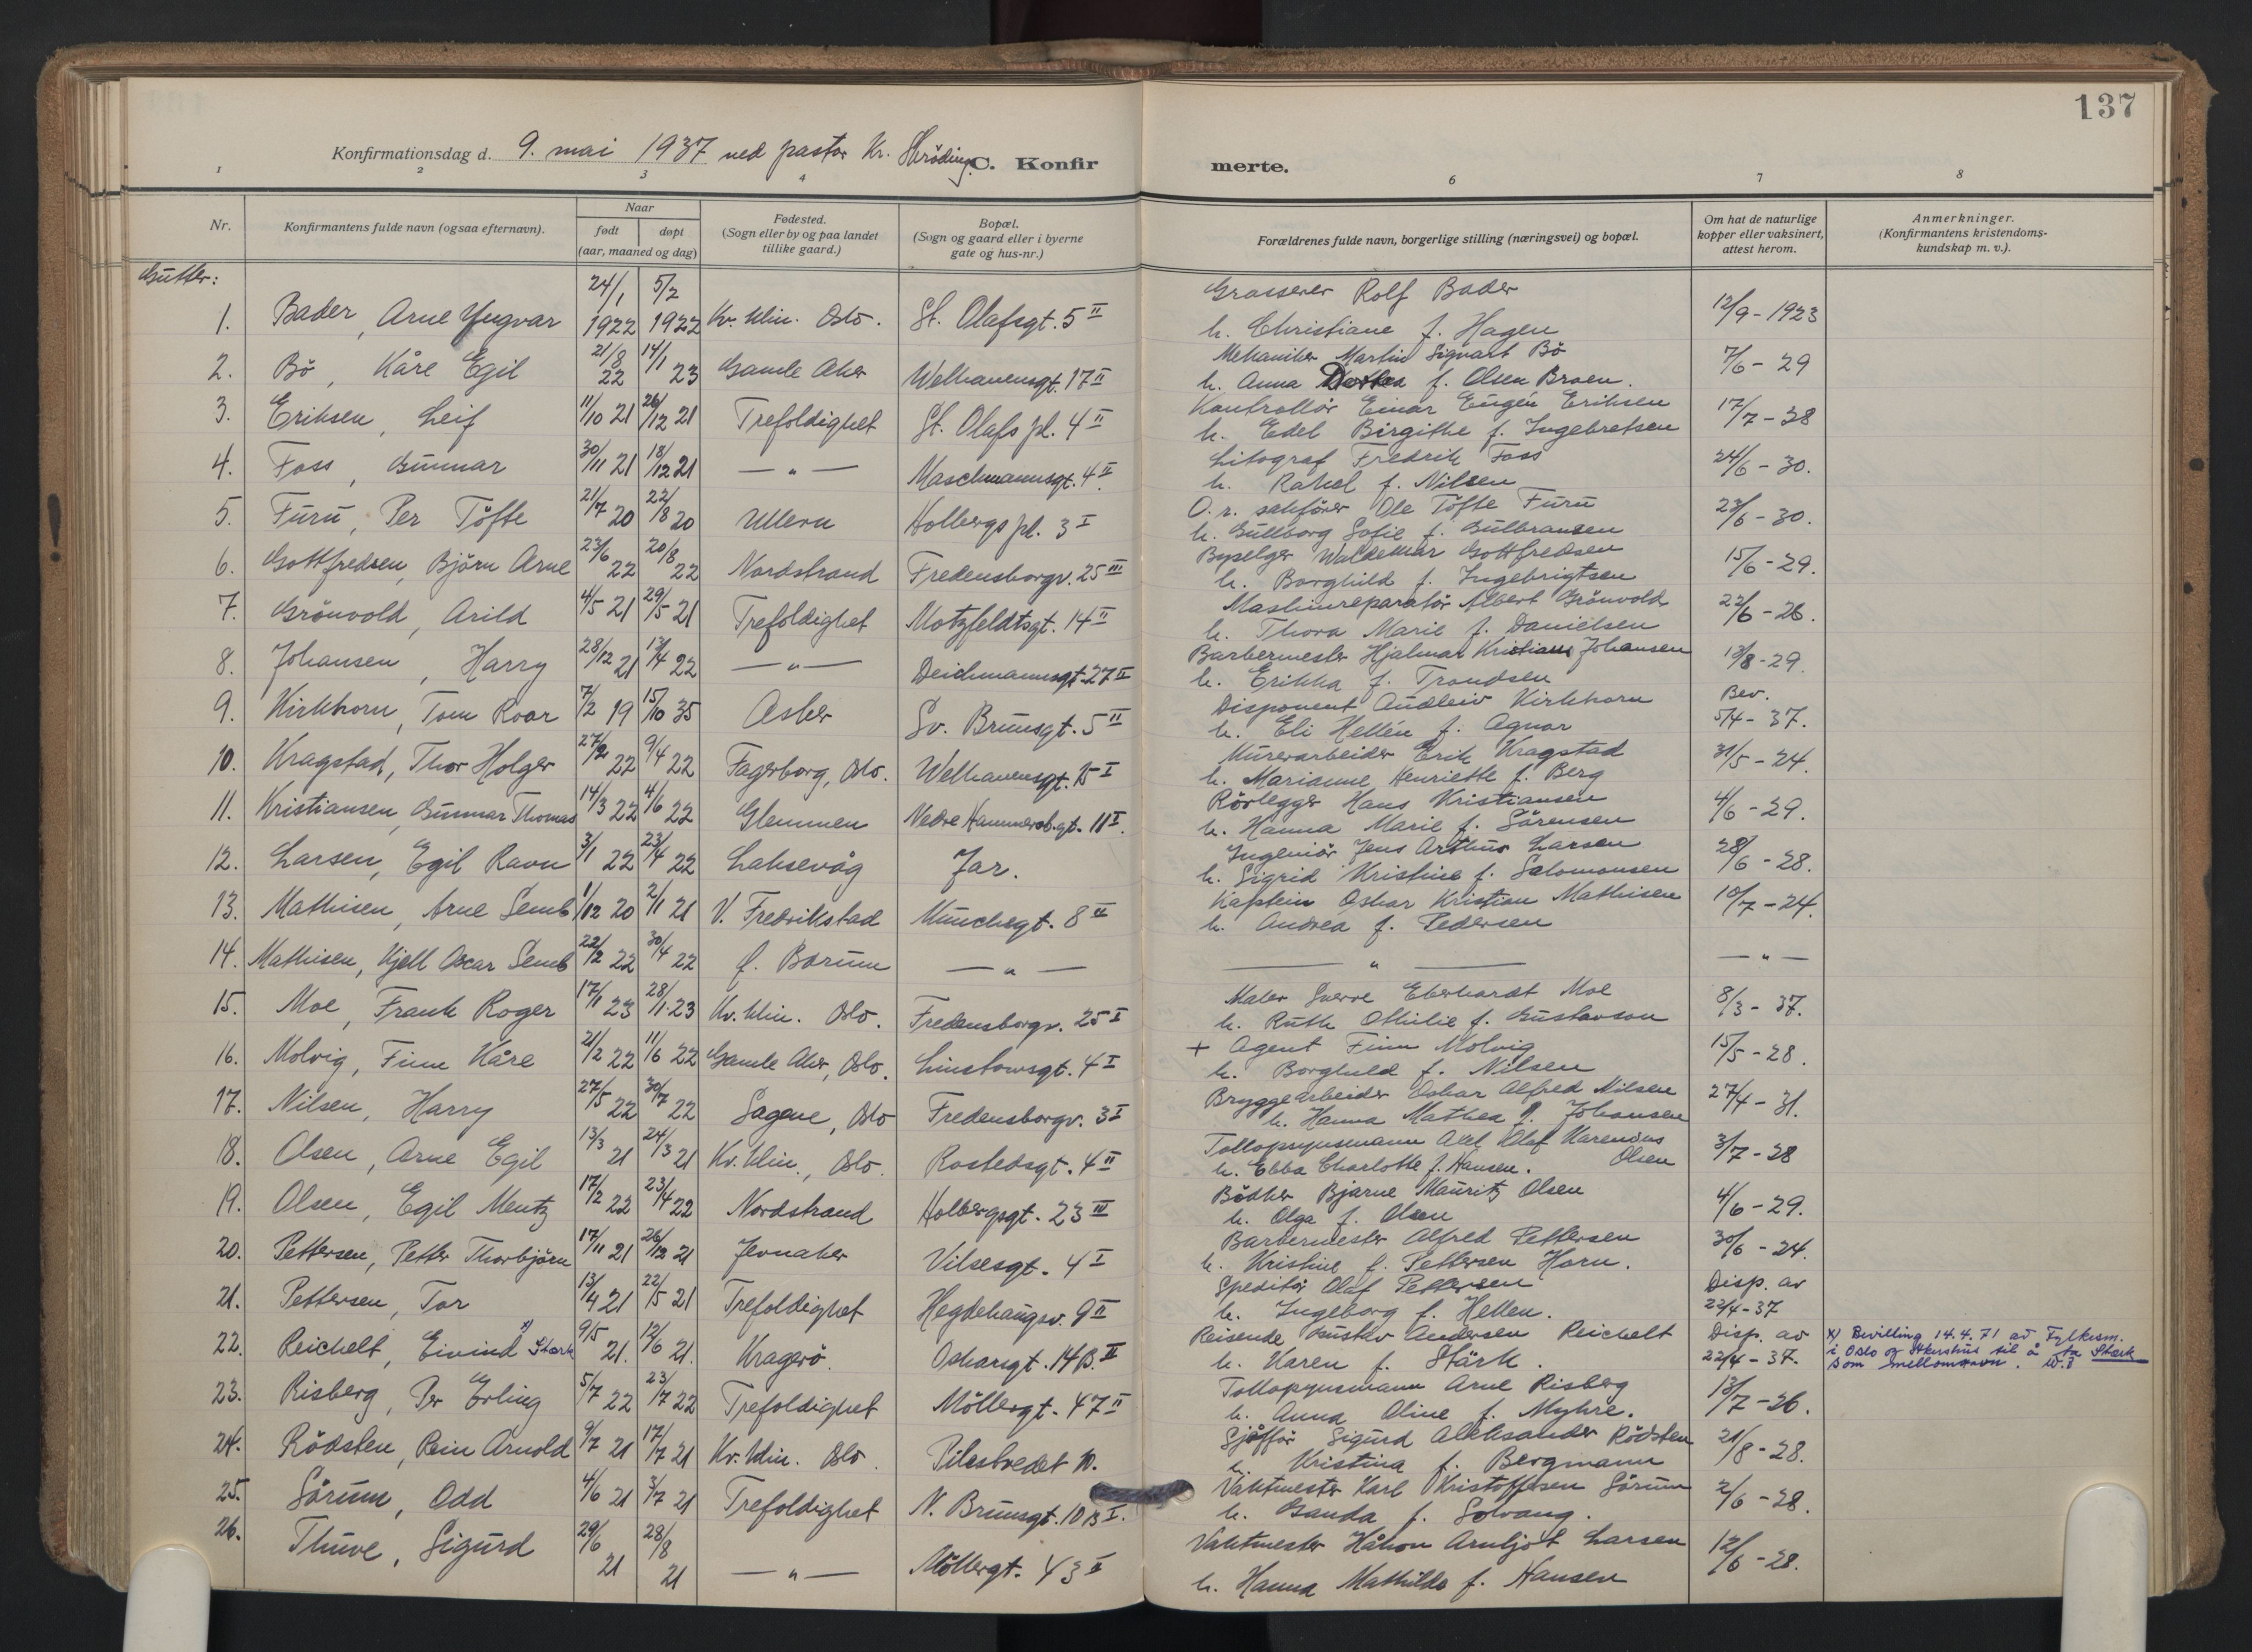 137
Konfirmationsdag d. 9. mai 1937 ved pastor Kr.
C. Konfirmerte.
1 2 3 4 6 7 8
Nr. Konfirmantens fulde navn (ogsaa efternavn). Naar født døpt (aar, maaned og dag) Fødested. (Sogn eller by og paa landet tillike gaard.) Bopæl. (Sogn og gaard eller i byerne gate og hus-nr.) Forældrenes fulde navn, borgerlige stilling (næringsvei) og bopæl. Om hat de naturlige kopper eller vaksinert, attest herom. Anmerkninger. (Konfirmantens kristendoms-kundskap m. v.).
Gutter:
1. Bader, Arne Yngvar 24/1 1922 5/2 1922 Kv. klin. Oslo. St. Olafsgt. 5 II Grosserer Rolf Bader
h. Christiane f. Hagen 12/9 - 1923
2. Bö, Kåre Egil 21/8 22 14/1 23 Gamle Aker Welhavensgt. 17 II Mekaniker Martin Sigvart Bö
h. Anna Dorthea f. Olsen Braen. 7/6 - 29
3. Eriksen, Leif 11/10 21 26/12 21 Trefoldighet St. Olafs pl. 4 II Kontrollör Einar Eugén Eriksen
h. Edel Birgithe f. Ingebretsen 17/7 - 38
4. Foss, Gunnar 30/11 21 18/12 21 — " — Maschmannsgt. 4 II Litograf Fredrik Foss
h. Rakel f. Nilsen 24/6 - 30.
5. Furu, Per Töfte 21/7 20 22/8 20 Ullern Holbergs pl. 3 I O. r. sakförer Ole Töfte Furu
h. Gullborg Sofie f. Gulbransen 23/6 - 30.
6. Gottfredsen, Björn Arne 23/6 22 20/8 22 Nordstrand Fredensborgv. 25 III Byselger Waldemar Gottfredsen
h. Borghild f. Ingebrigtsen 15/6 - 29.
7. Grönvold, Arild 4/5 21 29/5 21 Trefoldighet Motzfeldtsgt. 14 II Maskinreparatör Albert Grönvold
h. Thora Marie f. Danielsen 22/6 - 26.
8. Johansen, Harry 28/12 21 13/4 22 — " — Deichmannsgt. 27 II Barbermester Hjalmar Kristians Johansen
h. Erikka f. Trondsen 13/8 - 29.
9. Kirkhorn, Tom Roar 7/2 19 15/10 35 Asker Sv. Brunsgt. 5 II Disponent Audleiv Kirkhorn
h. Eli Hellén f. Agnar Bev. 5/4 - 37.
10. Kragstad, Thor Holger 27/2 22 9/4 22 Fagerborg, Oslo. Welhavensgt. 15 I Murerarbeider Erik Kragstad
h. Marianne Henriette f. Berg 31/5 - 24.
11. Kristiansen, Gunnar Thomas 14/3 22 4/6 22 Glemmen Nedre Hammersb.gt. 11 I. Rörlegger Hans Kristiansen
h. Hanna Marie f. Sörensen 4/6 - 29.
12. Larsen, Egil Ravn 3/1 22 23/4 22 Laksevåg Jar. Ingeniör Jens Arthur Larsen
h. Sigrid Kristine f. Salomonsen 28/6 - 28.
13. Mathisen, Arne Semb 1/12 20 2/1 21 V. Fredrikstad Munchsgt. 8 II Kaptein Oskar Kristian Mathisen
h. Andrea f. Pedersen 10/7 - 24.
14. Mathisen, Kjell Oscar Semb 22/2 22 30/4 22 f. Borum — " — — " — — " —
15. Moe, Frank Roger 17/1 23 28/1 23 Kv. klin. Oslo. Fredensborgv. 25 I Maler Sverre Eberhardt Moe
h. Ruth Othilie f. Gustavson 8/3 - 37.
16. Molvig, Finn Kåre 21/2 22 11/6 22 Gamle Aker, Oslo. Linstowsgt. 4 I + Agent Finn Molvig
h. Borghild f. Nilsen 15/5 - 28.
17. Nilsen, Harry 27/5 22 30/7 22 Sagene, Oslo Fredensborgv. 3 I Bryggearbeider Oskar Alfred Nilsen
h. Hanna Mathea f. Johansen 27/4 - 31.
18. Olsen, Arne Egil 13/3 21 24/3 21 Kv. klin., Oslo. Rostedsgt. 4 II Tollopsynsmann Axel Olaf Karenius Olsen
h. Ebba Charlotte f. Hansen. 3/7 - 28
19. Olsen, Egil Mentz 17/2 22 23/4 22 Nordstrand Holbergsgt. 23 III Bödker Bjarne Mauritz Olsen
h. Olga f. Olsen 4/6 - 29.
20. Pettersen, Petter Thorbjörn 17/11 21 26/12 21 Jevnaker Vilsesgt. 4 I Barbermester Alfred Pettersen
h. Kristine f. Pettersen Horn. 30/6 - 24.
21. Pettersen, Tor 13/4 21 22/5 21 Trefoldighet Hegdehaugsv. 9 II Speditör Olaf Pettersen
h. Ingeborg f. Hellen. Disp. av 22/4 - 37
22. Reichelt, Eivind x) Stark 9/5 21. 12/6 21. Kragerö Oskarsgt. 14 B. II Reisende Gustav Andersen Reichelt
h. Karen f. Stärk. Disp. av 22/4 - 37. x) Bevilling 14.4.71 av Fylkesm.
i Oslo og Akershus til å ta Stark
som mellomnavn.
23. Risberg, Per Erling 5/7 22 23/7 22 Trefoldighet Möllergt. 47 II Tollopsynsmann Arne Risberg
h. Anna Aline f. Myhre. 13/7 - 26.
24. Rödsten, Rein Arnold 9/7 21 17/7 21 Kv. klin. Oslo. Pilestredet 10. Sjåfför Sigurd Aleksander Rödsten
h. Kristina f. Bergmann 21/8 - 28.
25. Sörum, Odd 4/6 21 3/7 21 Trefoldighet N. Brunsgt. 10 B I. Vaktmester Karl Kristoffersen Sörum
h. Ganda f. Solvang. 2/6 - 28.
26. Thuve, Sigurd 29/6 21 28/8 21 — " — Möllergt. 43 II Vaktmester Håkon Arnljot Larsen
h. Hanna Mathilde f. Hansen 12/6 - 28.